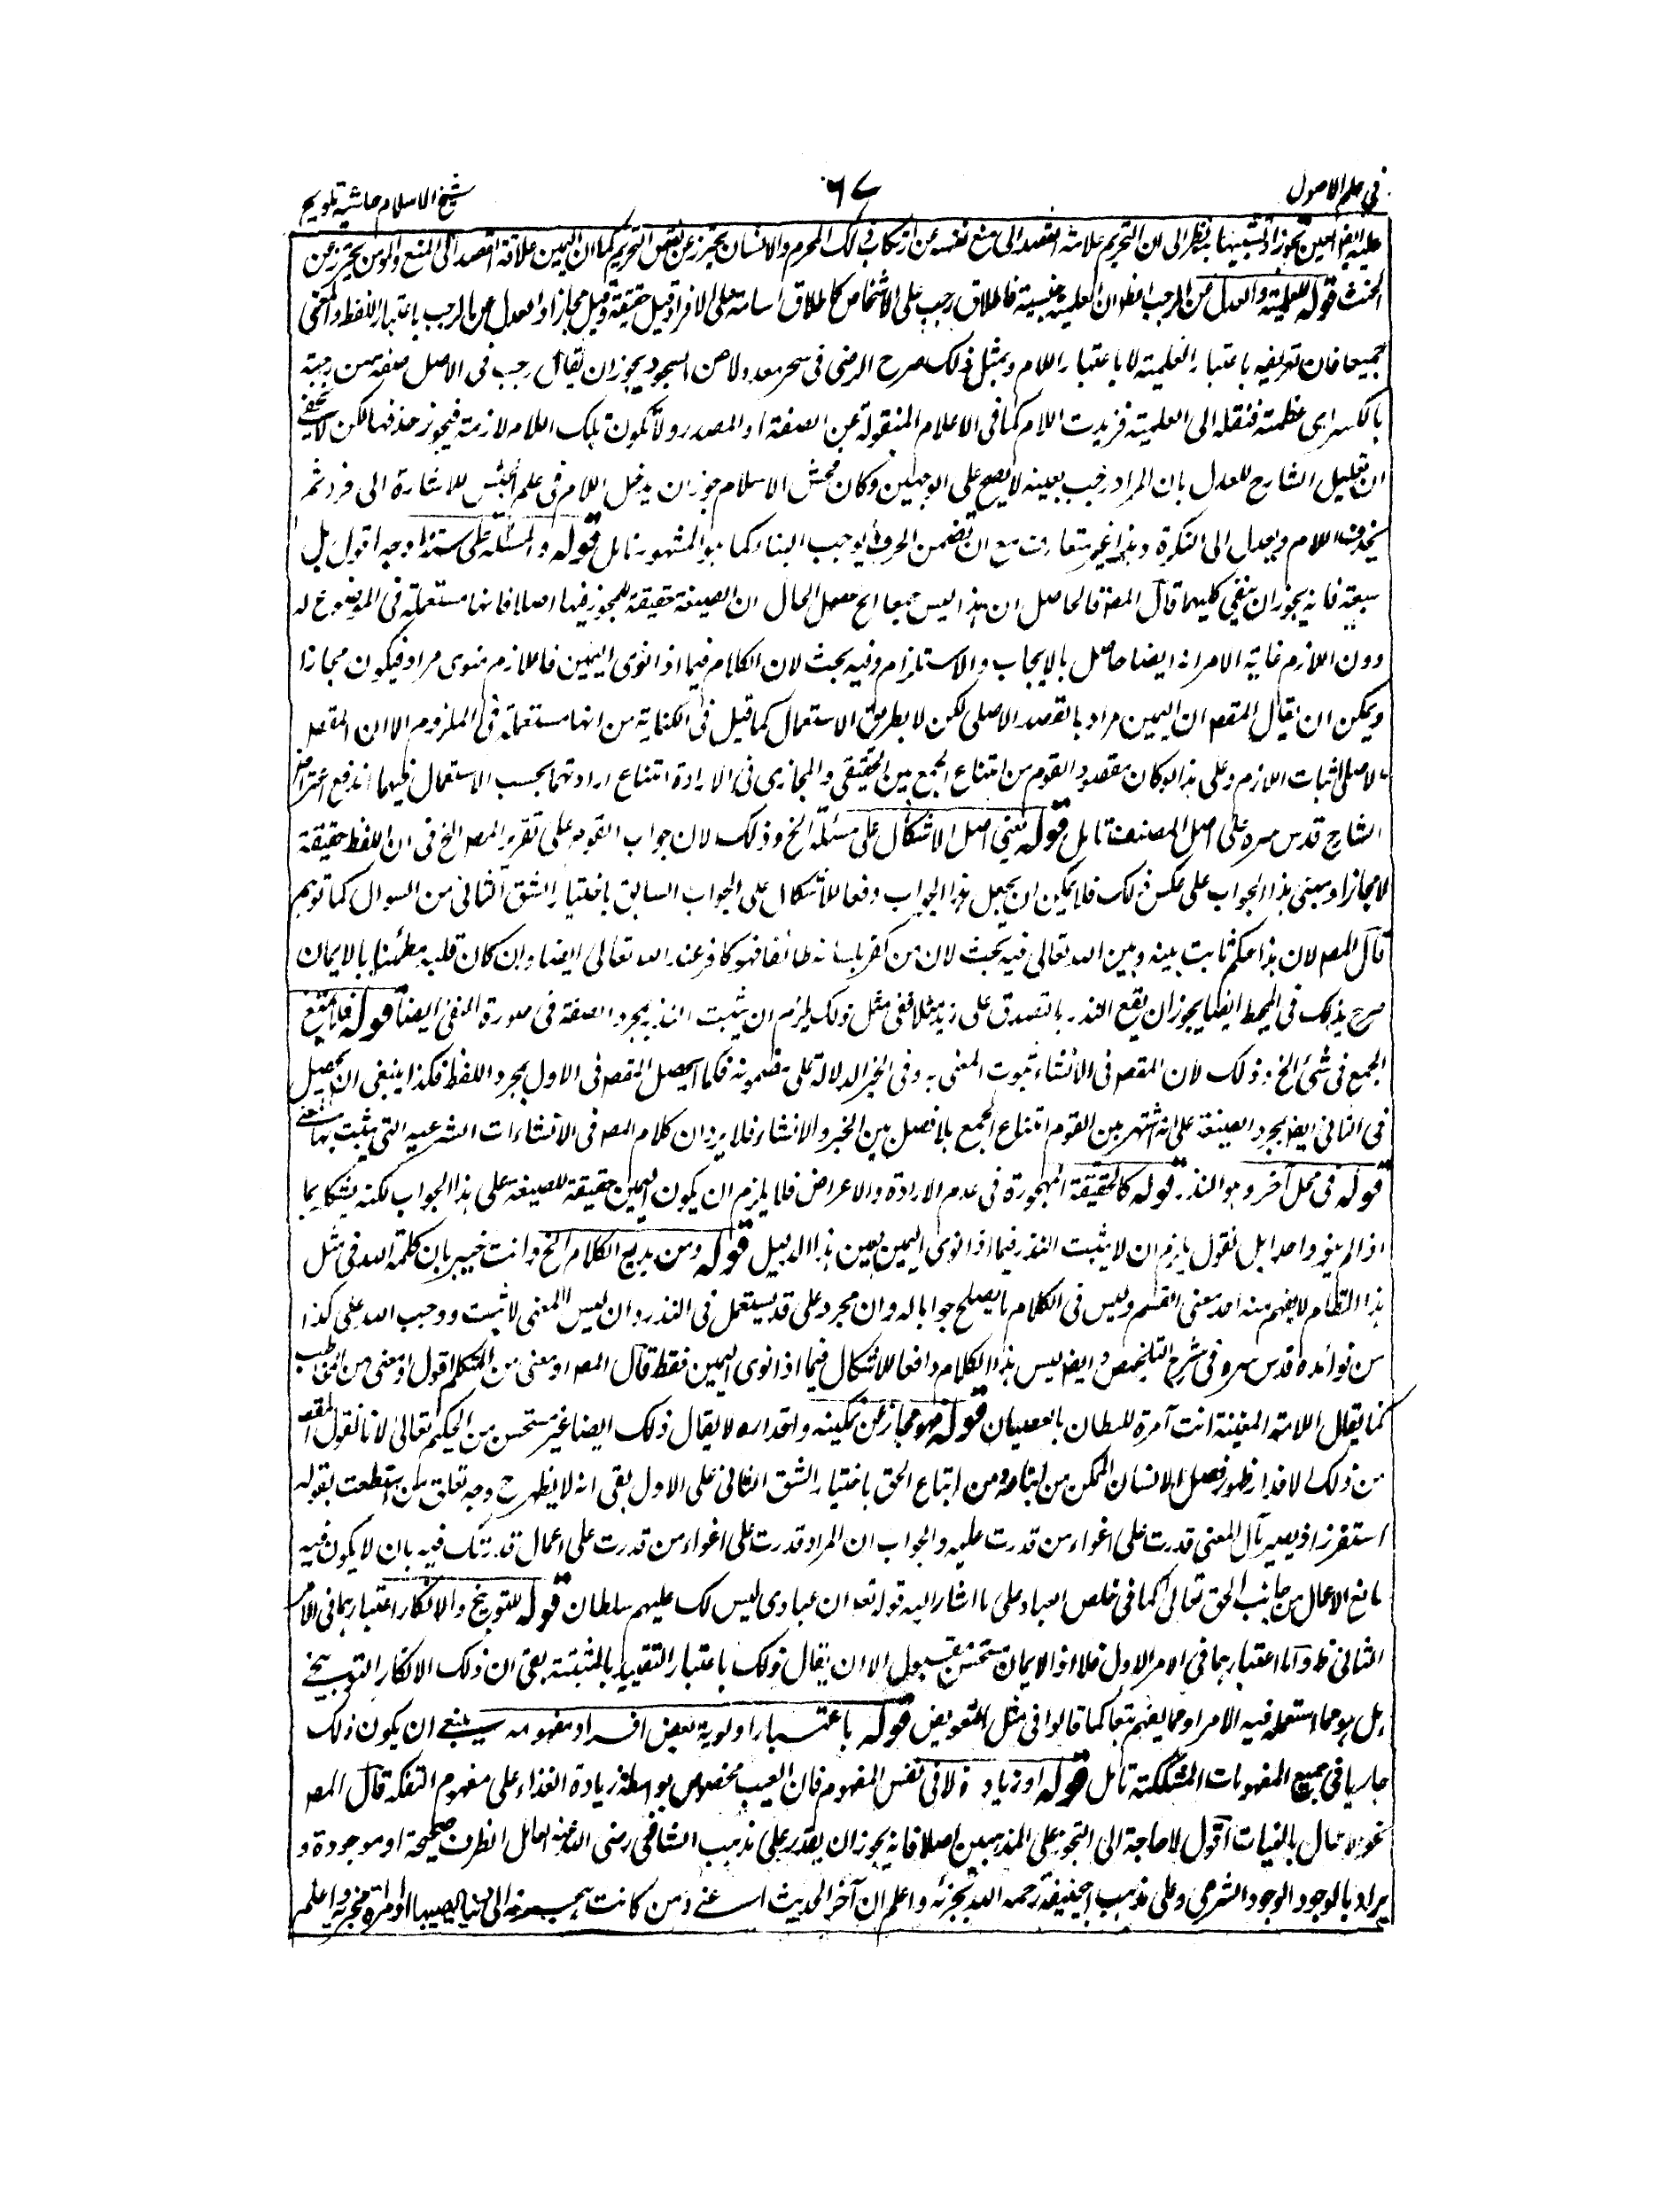 في علم الاصول
٦٧
شيخ الاسلام حاشية تلويح
عليه ايضا اليمين تجوزا وتشبيها بالنظر الى ان التحريم علامة القصد الى منع نفسه عن ارتكاب ذلك المحرم والانسان يحترز عن نقض التحريم كما ان اليمين علاقة القصد الى المنع والمومن يحترز عن
الحنث قوله للعلمية والعدل عن الرجب اظهر ان العلمية جنسية فاطلاق رجب على الاشخاص كاطلاق اسامة على الافراد قيل حقيقة وقيل مجازا والعدل عن الرجب باعتبار اللفظ والمعنى
جميعا فان تعريفه باعتبار العلمية لا باعتبار اللام وبمثل ذلك صرح الرضى في سحر معدولا عن السحر ويجوز ان يقال رجب فى الاصل صفة من رجبته
بالكسر اى عظمته فنقله الى العلمية فزيدت اللام كما فى الاعلام المنقولة عن الصفة او المصدر ولا تكون تلك اللام لازمة فيجوز حذفها لكن لا يخفى
ان تعليل الشارح للعدل بان المراد رجب بعينه لا يصح على الوجهين وكان محشى الاسلام جوز ان يدخل اللام فى علم الجنس للاشارة الى فرد ثم
يحذف اللام ويعدل الى النكرة وهذا غير متعارف مع ان تضمن الحرف يوجب البناء كما هو المشهور تامل قوله والمسئلة على ستة اوجه اقول بل
سبعة فانه يجوز ان ينفى كليهما قال المصـ فالحاصل ان هذا ليس جمعا الخ محصل الحال ان الصيغة حقيقة لا تجوز فيها اصلا فانها مستعملة فى الموضوع له
دون اللازم غاية الامر انه ايضا حاصل بالايجاب والاستلزام وفيه بحث لان الكلام فيما اذا نوى اليمين فاللازم منوى مراد فيكون مجازا
ويمكن ان يقال المقصـ ان اليمين مراد بالقصد الاصلى لكن لا بطريق الاستعمال كما قيل فى الكناية من انها مستعملة فى الملزوم الا ان المقصـ
الاصلى اثبات اللازم وعلى هذا لو كان مقصود القوم من امتناع الجمع بين الحقيقى والمجازى فى الارادة امتناع ارادتهما بحسب الاستعمال فيهما اندفع اعتراض
الشارح قدس سره على اصل المصنف تامل قوله يعنى اصل الاشكال على مسئلة الخ وذلك لان جواب القوم على تقرير المصـ الخ فى ان اللفظ حقيقة
لا مجازا ومبنى هذا الجواب على عكس ذلك فلا يمكن ان يجعل هذا الجواب دفعا للاشكال على الجواب السابق باختيار الشق الثانى من السوال كما توهم
قال المصـ لان هذا حكم ثابت بينه وبين الله تعالى فيه بحث لان من كفر بلسانه طائعا فهو كافر عند الله تعالى ايضا وان كان قلبه مطمئنا بالايمان
صرح بذلك فى المحيط ايضا يجوز ان يقع النذر بالتصدق على زيد مثلا ففى مثل ذلك يلزم ان يثبت النذر بمجرد الصيغة فى صورة النفى ايضا قوله فلا يمتنع
الجمع فى شئ الخ وذلك لان المقصـ فى الانشاء ثبوت المعنى به وفى الخبر الدلالة على مضمونه فكما يحصل المقصـ فى الاول بمجرد اللفظ فكذا ينبغى ان يحصل
فى الثانى ايضا بمجرد الصيغة على انه اشتهر بين القوم امتناع الجمع بلا فصل بين الخبر والانشاء فلا يرد ان كلام المصـ فى الانشاءات الشرعية التى يثبت بها معنى
قوله فى محل آخر وهو النذر قوله كالحقيقة المهجورة فى عدم الارادة والاعراض فلا يلزم ان يكون اليمين حقيقة للصيغة على هذا الجواب لكنه يشكل بما
اذا لم ينو واحدا بل نقول يلزم ان لا يثبت النذر فيما اذا نوى اليمين بعين هذا الدليل قوله ومن بديع الكلام الخ وانت خبير بان كلمة الله فى مثل
هذا النظام لا يفهم منه احد معنى القسم وليس فى الكلام ما يصلح جوابا له وان مجرد على قد يستعمل فى النذر وان ليس المعنى لا ثبت ووجب الله على كذا
من فوائده قدس سره فى شرح التلخيص وايضا ليس هذا الكلام دافعا للاشكال فيما اذا نوى اليمين فقط قال المصـ او معنى من المتكلم اقول او معنى من المخاطب
كما يقال للامة المغنية انت آمرة للسلطان بالعصيان قوله فهو مجاز عن تمكينه واقداره لا يقال ذلك ايضا غير مستحسن من الحكيم تعالى لانا نقول المقصـ
من ذلك الاقدار ظهور فصل الانسان المتمكن من اتباعه ومن اتباع الحق باختيار الشق الثانى على الاول بقى انه لا يظهر ح وجه تعلق من استطعت بقوله
استفزز اذ يصير مآل المعنى قدرت على اغواء من قدرت عليه والجواب ان المراد قدرت على اغواء من قدرت على اعمال قدرتك فيه بان لا يكون فيه
مانع الاعمال من جانب الحق تعالى كما فى خلص العباد على ما اشار اليه قوله تعـ ان عبادى ليس لك عليهم سلطان قوله للتوبيخ والانكار اعتبارهما فى الامر
الثانى ظ واما اعتبارهما فى الامر الاول فلا اذ الايمان مستحسن مقبول الا ان يقال ذلك باعتبار التقييد بالمشيئة بقى ان ذلك الانكار التوبيخى
هل هو مما استعمل فيه الامر او مما يفهم تبعا كما قالوا فى مثل التعويض قوله باعتبار اولوية بعض افراد مفهومه ينبغى ان يكون ذلك
جاريا فى جميع المفهومات المشككة تامل قوله او زيادة لا فى نفس المفهوم فان العيب مخصوص بواسطة زيادة الغذاء على مفهوم التفكه قال المصـ
نحو الاعمال بالنيات اقول لا حاجة الى التجوز على المذهبين اصلا فانه يجوز ان يقدر على مذهب الشافعى رضى الله عنه العامل الظرف صحيحة او موجودة و
يراد بالوجود الوجود الشرعى وعلى مذهب ابيحنيفة رحمه الله تجزئه واعلم ان آخر الحديث اعنى ومن كانت هجرته الى دنيا يصيبها او امراة فهجرته واعلم